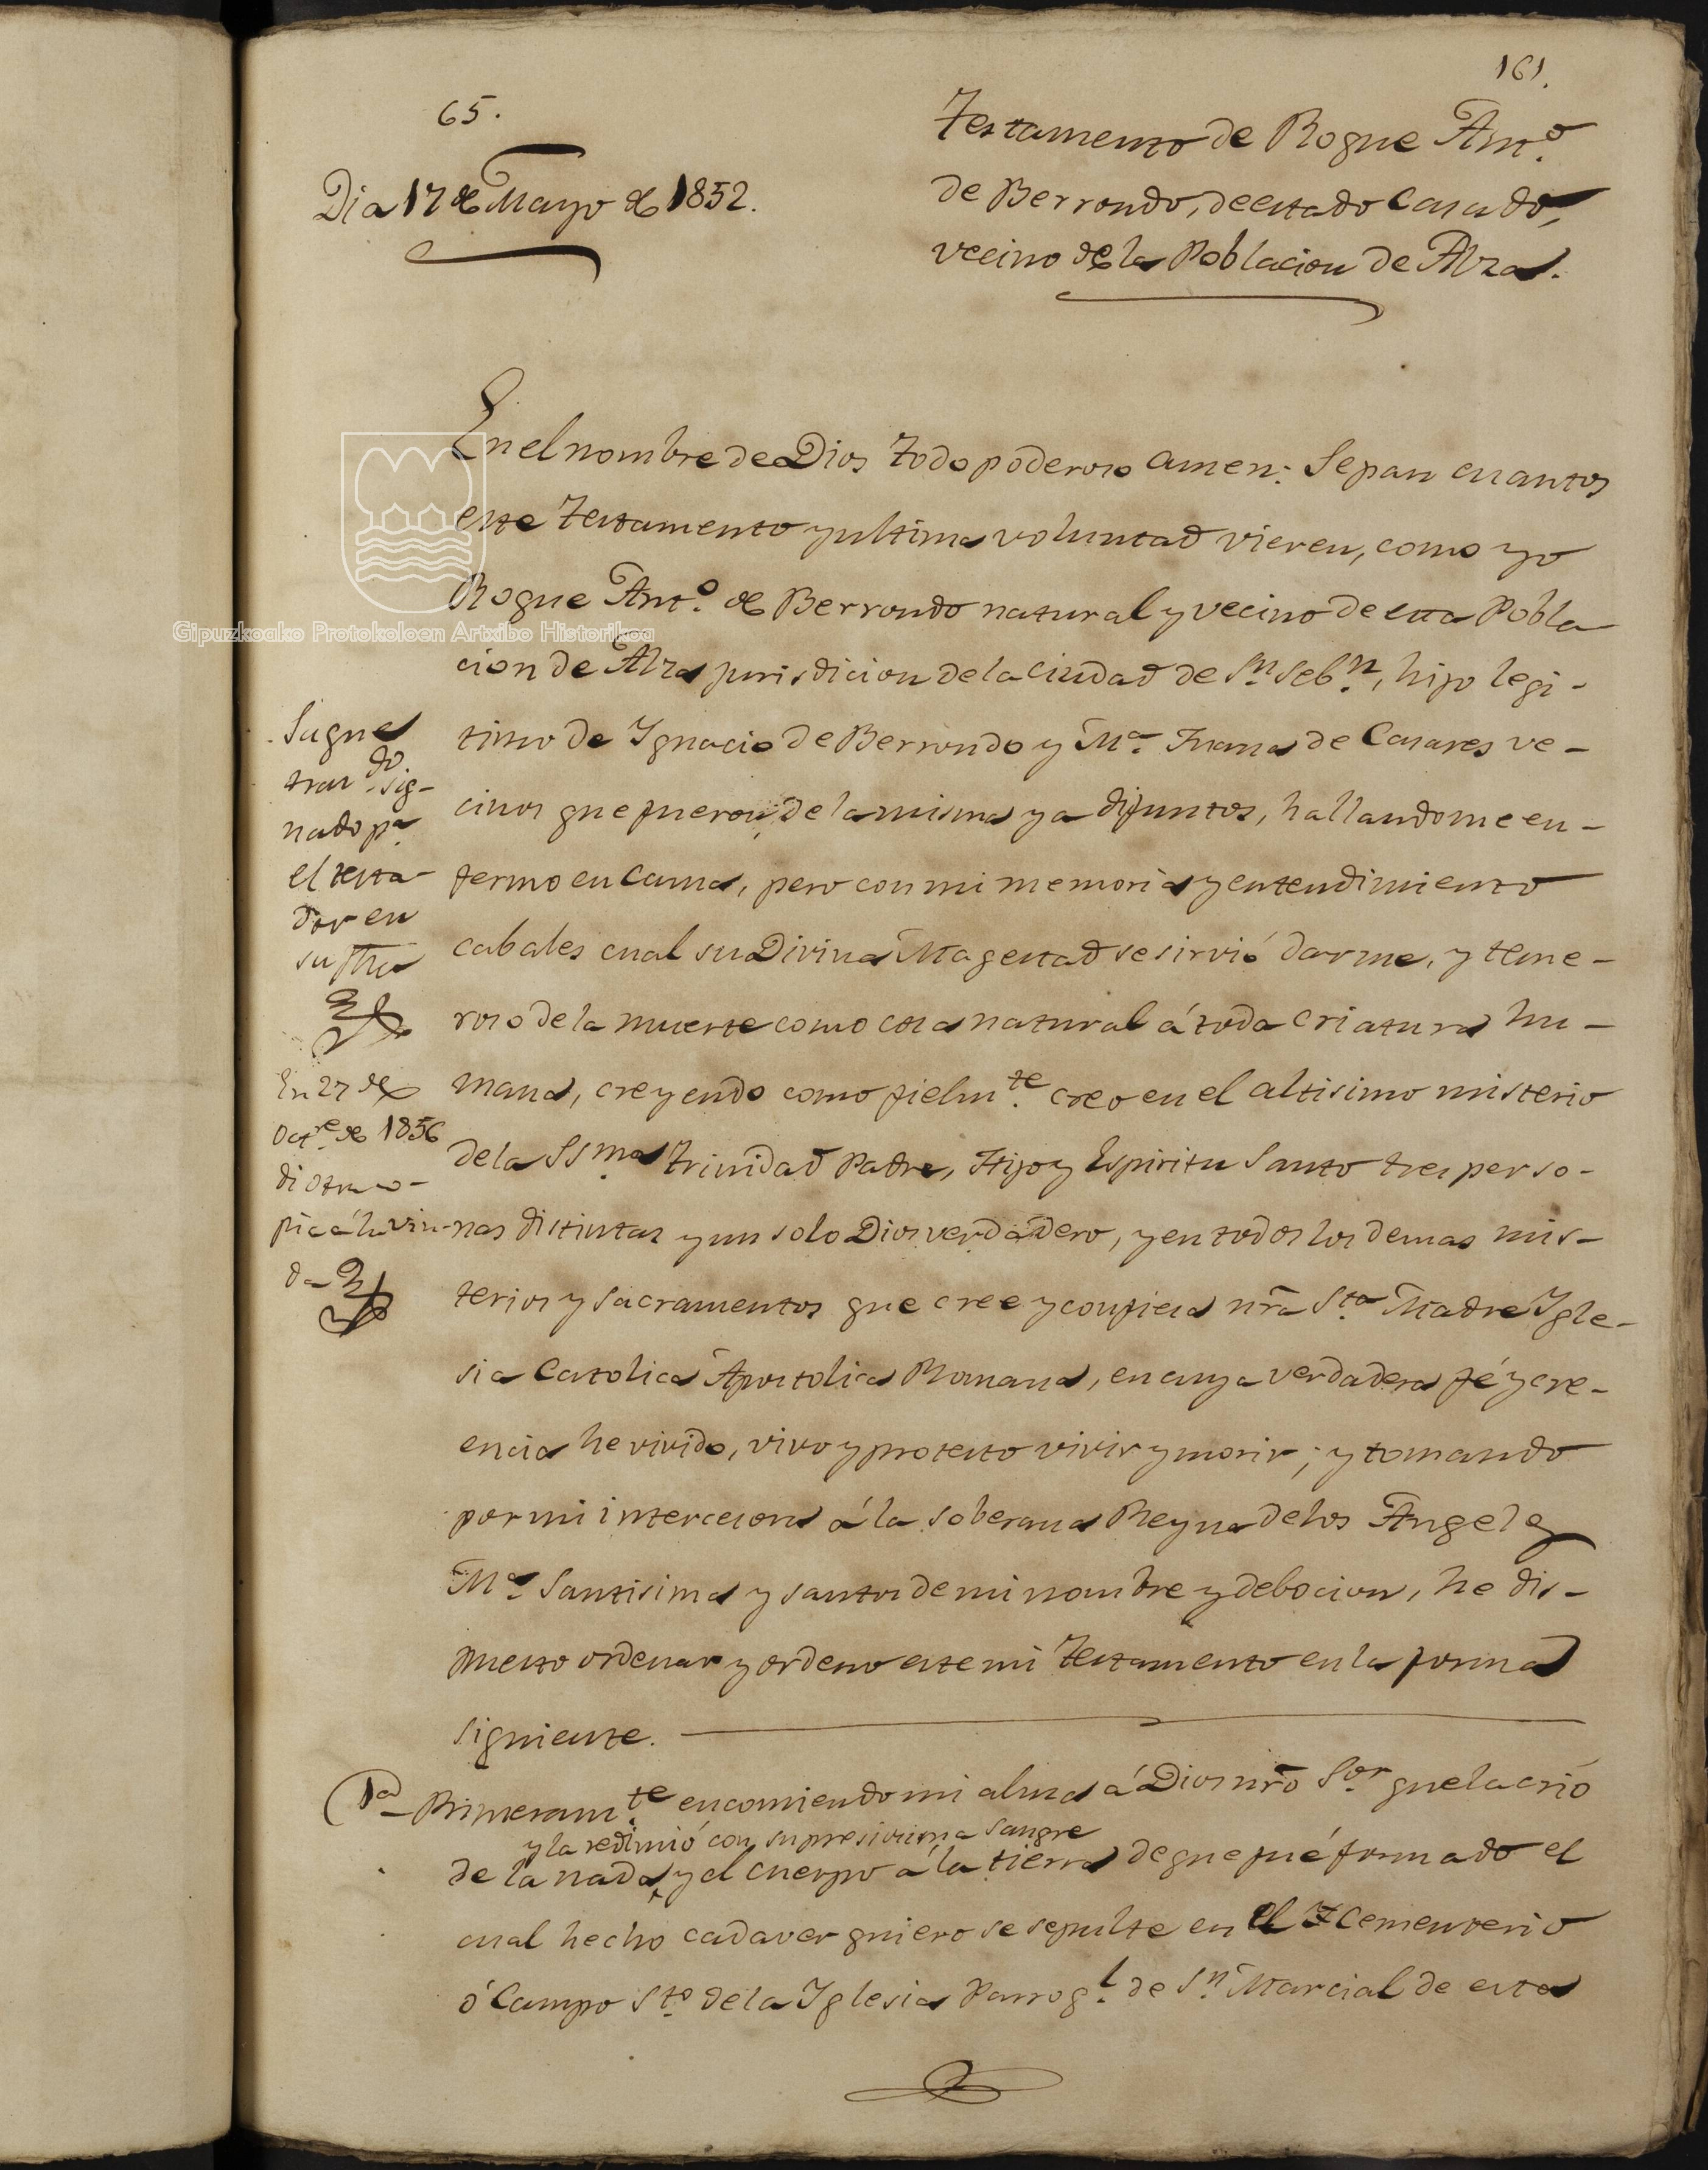 161.
65.
Dia 17 de Mayo de 1852.
Testamento de Roque Ant.º
de Berrondo, de estado Casado,
vecino de la Poblacion de Alza.
En el nombre de Dios Todo poderoso amen: Sepan cuantos
este Testamento y ultima voluntad vieren, como yo
Roque Ant.º de Berrondo natural y vecino de esta Pobla
cion de Alza jurisdicion de la ciudad de S.n Seb.n, hijo legi-
timo de Ignacio de Berrondo y M.a Juana de Casares ve-
cinos que fueron de la misma ya difuntos, hallandome en-
fermo en cama, pero con mi memoria y entendimiento
cabales cual su Divina Magestad se sirvió darme, y teme-
roso de la muerte como cosa natural á toda criatura hu-
mana, creyendo como fielm.te creo en el altisimo misterio
de la SS.ma Trinidad Padre, Hijo y Espiritu Santo tres perso-
nas distintas y un solo Dios verdadero, y en todos los demas mis-
terios y sacramentos que cree y confiesa nrã S.ta Madre Igle-
sia Catolica Apostolica Romana, en cuya verdadera fé y cre-
encia he vivido, vivo y protesto vivir y morir; y tomando
por mi intercesora á la soberana Reyna de los Angeles
M.a Santisima y santos de mi nombre y debocion, he dis-
puesto ordenar y ordeno este mi Testamento en la forma
siguiente.
1.a Primeram.te encomiendo mi alma á Dios nrõ S.or que la crió
y la redimió con su presiosisima sangre
de la nada y el cuerpo á la tierra de que fué formado el
cual hecho cadaver quiero se sepulte en el Cementerio
ó Campo S.to de la Iglesia Parroq.l de S.n Marcial de esta
Saqué
tras.do sig-
nado p.a
el testa-
dor en
su fha
En 27 de
Oct.re de 1856
di otra co-
pia á la viu-
da
Gipuzkoako Protokoloen Artxibo Historikoa